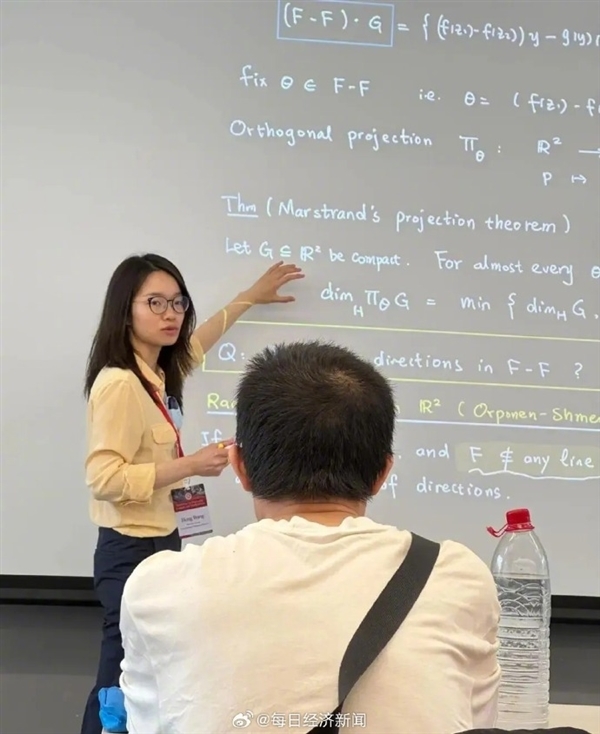 (F-F)·G = { (f(z₁)-f(z₂)) y - g(y)
fix θ ∈ F-F i.e. θ = (f(z₁)-f
Orthogonal projection π_θ : ℝ² →
P ↦
Thm (Marstrand's projection theorem)
Let G ⊆ ℝ² be compact. For almost every θ
dim_H π_θ G = min { dim_H G,
Q: directions in F-F ?
ℝ² (Orponen-Shme
If and F ⊄ any line
of directions.
Hong Wang
@每日经济新闻